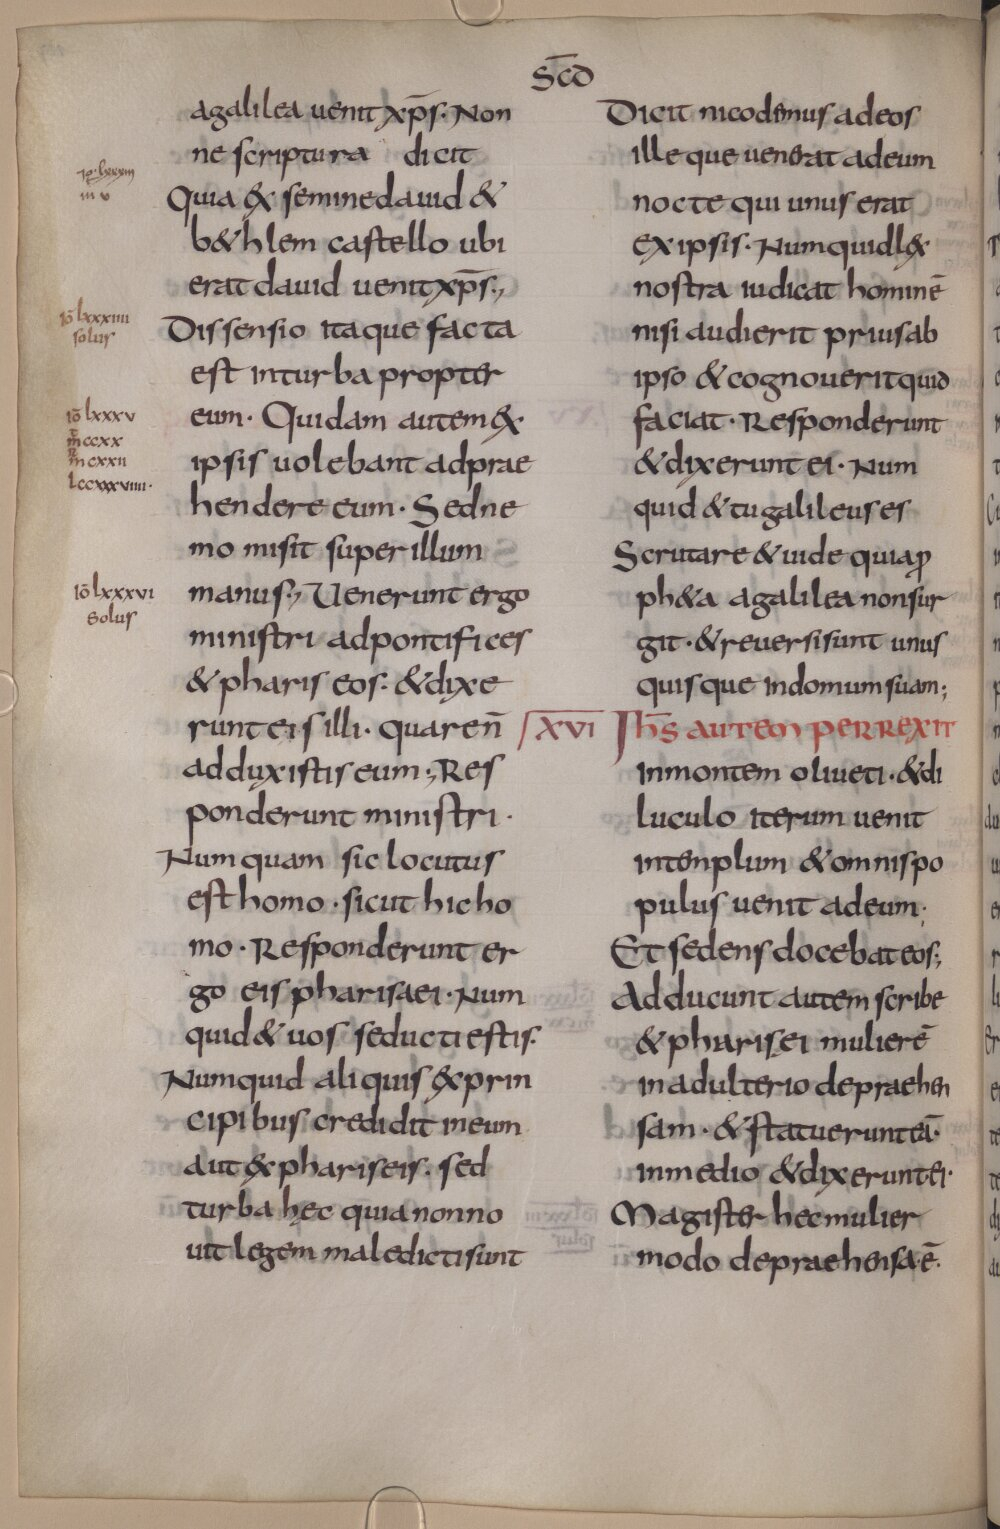 Sc̄d
agalilea uenit xp̄s. Non
ne scriptura dicit
Quia & semine dauid &
b&hlem castello ubi
erat dauid uenit xp̄s.,
Dissensio itaque facta
est inturba propter
eum. Quidam autem ex
ipsis uolebant adprae
hendere eum. Sed ne
mo misit super illum
manus., Uenerunt ergo
ministri ad pontifices
& phariseos. & dixe
runt eis illi. quaren̄
adduxistis eum., Res
ponderunt ministri.
Numquam sic locutus
est homo. sicut hic ho
mo. Responderunt er
go eis pharisaei. Num
quid & uos seducti estis.
Numquid aliquis ex prin
cipibus credidit in eum
aut ex phariseis. sed
turba hęc quia non no
uit legem maledicti sunt
iō lxxxiiii
solus
iō lxxxv
m̄ ccxx
m cxxii
l ccxxxviiii.
iō lxxxvi
solus
Dicit nicodemus ad eos
ille que uenerat ad eum
nocte qui unus erat
ex ipsis. Numquid lex
nostra iudicat hominē
nisi audierit prius ab
ipso & cognouerit quid
faciat. Responderunt
& dixerunt ei. Num
quid & tu galileus es
Scrutare & uide quia ꝓ
ph&a agalilea non sur
git. & reuersi sunt unus
quisque in domum suam;
XVI Ih̄s autem perrexit
in montem oliueti. & di
luculo iterum uenit
in templum & omnis po
pulus uenit ad eum.
Et sedens docebat eos;
Adducunt autem scribe
& pharisei mulierē
in adulterio depraehen
sam. & statuerunt eā.
in medio & dixerunt ei.
Magister hec mulier
modo depraehensa ē.